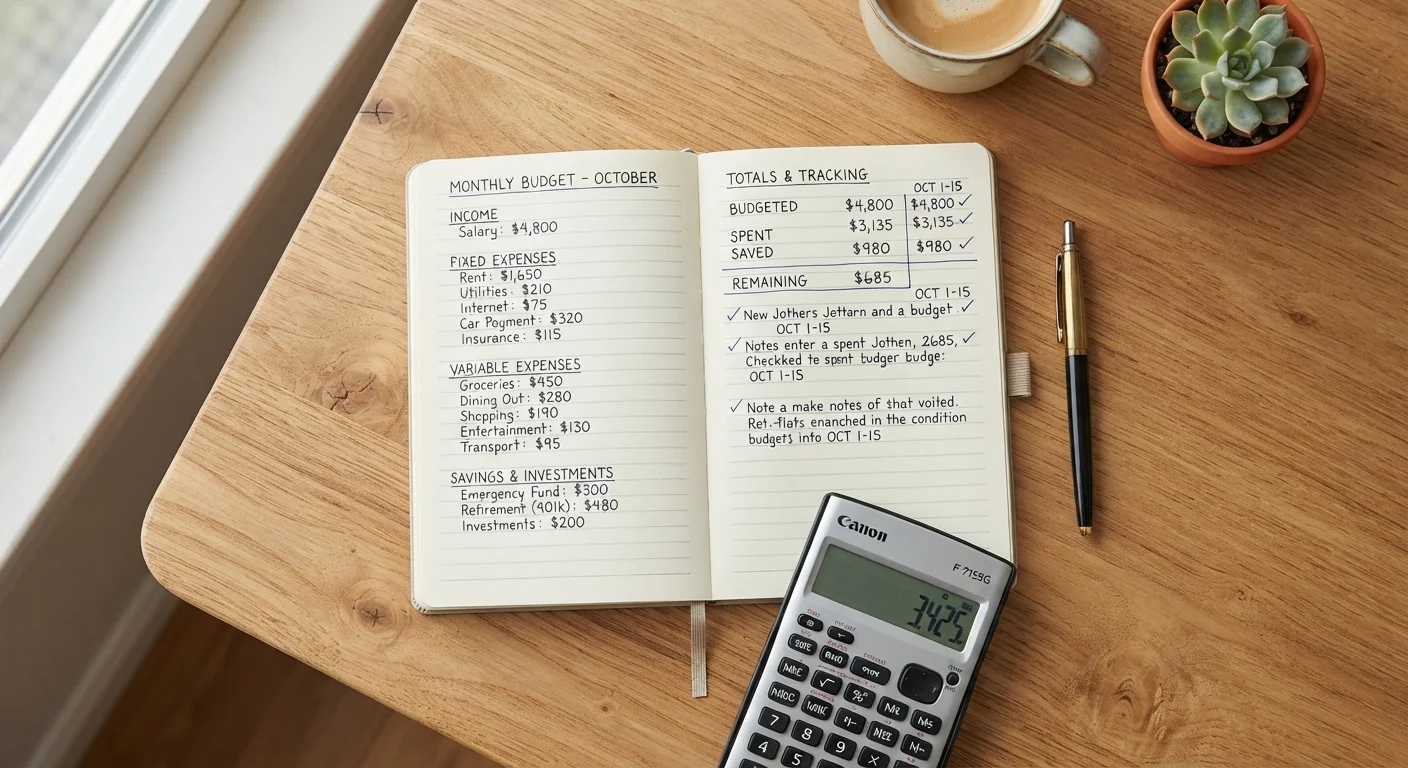 MONTHLY BUDGET - OCTOBER
INCOME
Salary: $4,800
FIXED EXPENSES
Rent: $1,650
Utilities: $210
Internet: $75
Car Poyment: $320
Insurance: $115
VARIABLE EXPENSES
Groceries: $450
Dining Out: $280
Shopping: $190
Entertainment: $130
Transport: $95
SAVINGS & INVESTMENTS
Emergency Fund: $300
Refirement (401k): $480
Investments: $200
TOTALS & TRACKING
OCT 1-15
BUDGETED $4,800 $4,800 ✓
SPENT $3,135 $3,135 ✓
SAVED $980 $980 ✓
REMAINING $685
OCT 1-15
✓ New Jothers Jettarn and a budget. ✓
OCT 1-15
✓ Notes enter a spent Jothen, 2685, ✓
Checkked te spent budger budge:
OCT 1-15
✓ Note a make notes of that voited.
Ret.-flats enanched in the condition
budgets info OCT 1-15
Canon
3425
√
7 8 9
4 5 ×